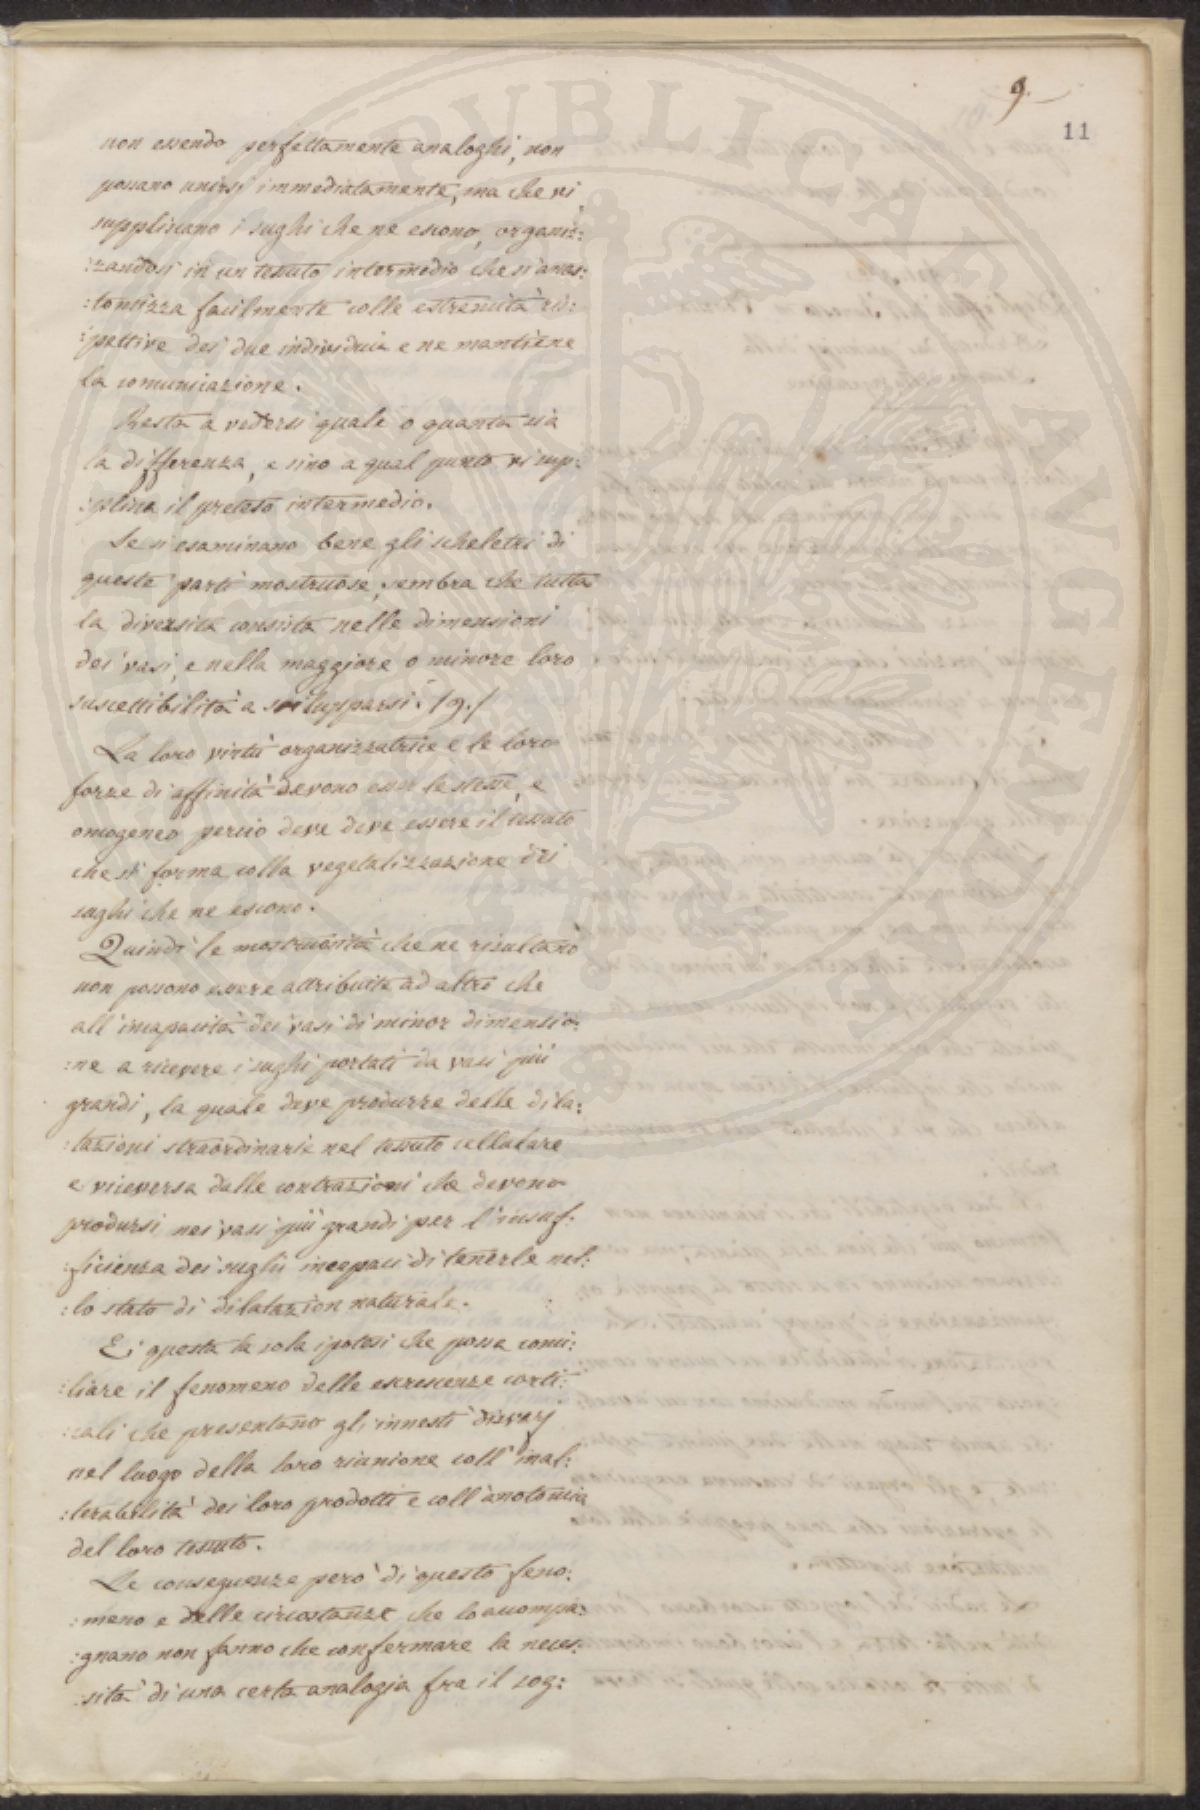 9.
11
non essendo perfettamente analoghi, non
possano unirsi immediatamente, ma che vi
suppliscano i sughi che ne escono, organiz:
:zandosi in un tessuto intermedio che si anas:
:tomizza facilmente colle estremità ris:
:pettive dei due individui e ne mantiene
la comunicazione.
Resta a vedersi quale o quanta sia
la differenza, e sino a qual punto vi sup:
:plisca il preteso intermedio.
Se si esaminano bene gli scheletri di
queste parti mostruose, sembra che tutta
la diversità consista nelle dimensioni
dei vasi, e nella maggiore o minore loro
suscettibilità a svilupparsi. /9./
La loro virtù organizzatrice e le loro
forze di affinità devono esser le stesse, e
omogeneo perciò deve deve essere il tessuto
che si forma colla vegetalizzazione dei
sughi che ne escono.
Quindi le mostruosità che ne risultano
non possono essere attribuite ad altro che
all'incapacità dei vasi di minor dimensio:
:ne a ricevere i sughi portati da vasi più
grandi, la quale deve produrre delle dila:
:tazioni straordinarie nel tessuto cellulare
e viceversa dalle contrazioni che devono
prodursi nei vasi più grandi per l'insuf:
:ficienza dei sughi incapaci di tenerle nel:
:lo stato di dilatazion naturale.
E' questa la sola ipotesi che possa conci:
:liare il fenomeno delle escrescenze corti:
:cali che presentano gli innesti diversj
nel luogo della loro riunione coll'inal:
:terabilità dei loro prodotti e coll'anotomia
del loro tessuto.
Le conseguenze però di questo feno:
:meno e delle circostanze che lo accompa:
:gnano non fanno che confermare la neces:
:sità di una certa analogia fra il sog:
PUBLICAE
AVGENDAE